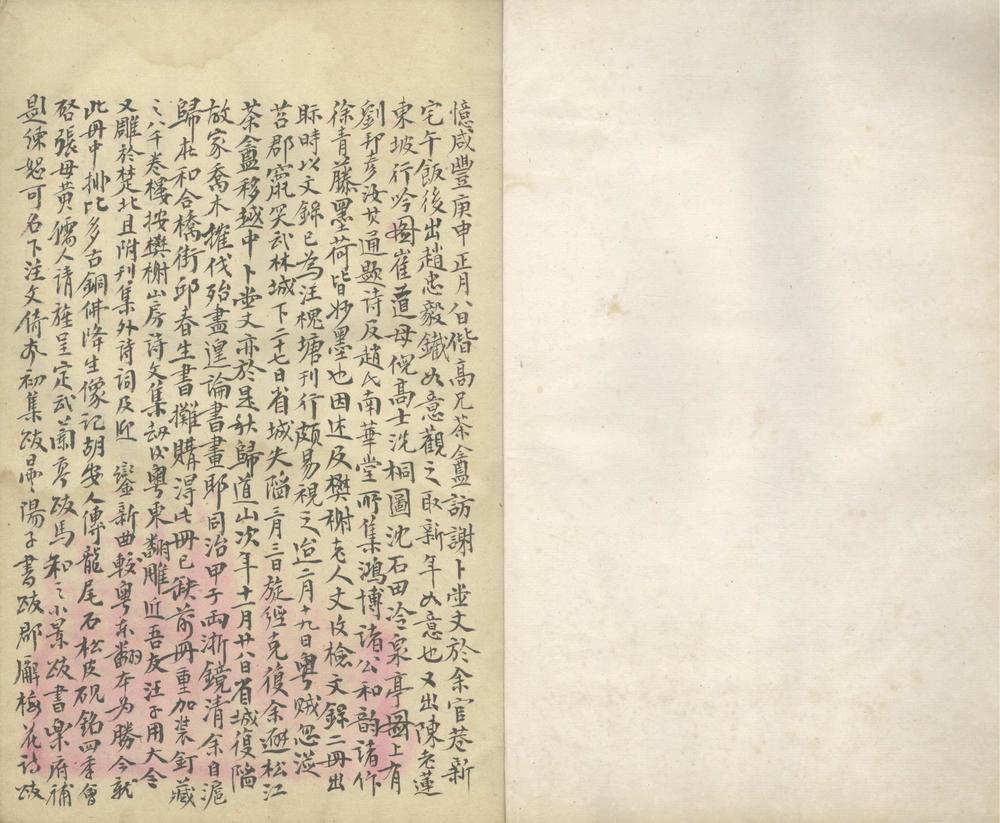 憶咸豐庚申正月八日偕高兄茶盦訪謝卜堂丈於余官巷新
宅午飯後出趙忠毅鐵如意觀之取新年如意也又出陳老蓮
東坡行吟圖崔道母倪高士洗桐圖沈石田冷泉亭圖上有
劉邦彥汝其通題詩及趙氏南華堂所集鴻博諸公和韵諸作
徐青藤墨荷皆妙墨也因述及樊榭老人文攷檢文錄二冊出
眎時以文錄已為汪槐塘刊行頗易視之迨二月十九日粵賊忽逆
苕郡竄突武林城下二十七日省城失陷三月三日旋經克復余避松江
茶盦移越中卜堂丈亦於是秋歸道山次年十一月廿八日省城復陷
故家喬木摧伐殆盡遑論書畫耶同治甲子兩浙鏡清余自滬
歸在和合橋街邱春生書攤購得此冊已缺前冊重加裝釘藏
之八千卷樓按樊榭山房詩文集劫後粵東翻雕近吾友汪子用大令
又雕於楚北且附刊集外詩詞及迎鑾新曲較粵東翻本為勝今就
此冊中排比多古銅佛降生像記胡安人傳龍尾石松皮硯銘四季會
啓張母黃孺人請旌呈定武蘭亭跋馬和之小景跋書樂府補
題練恕可名下注文倚夯初集跋曇陽子書跋郡廨梅花詩跋